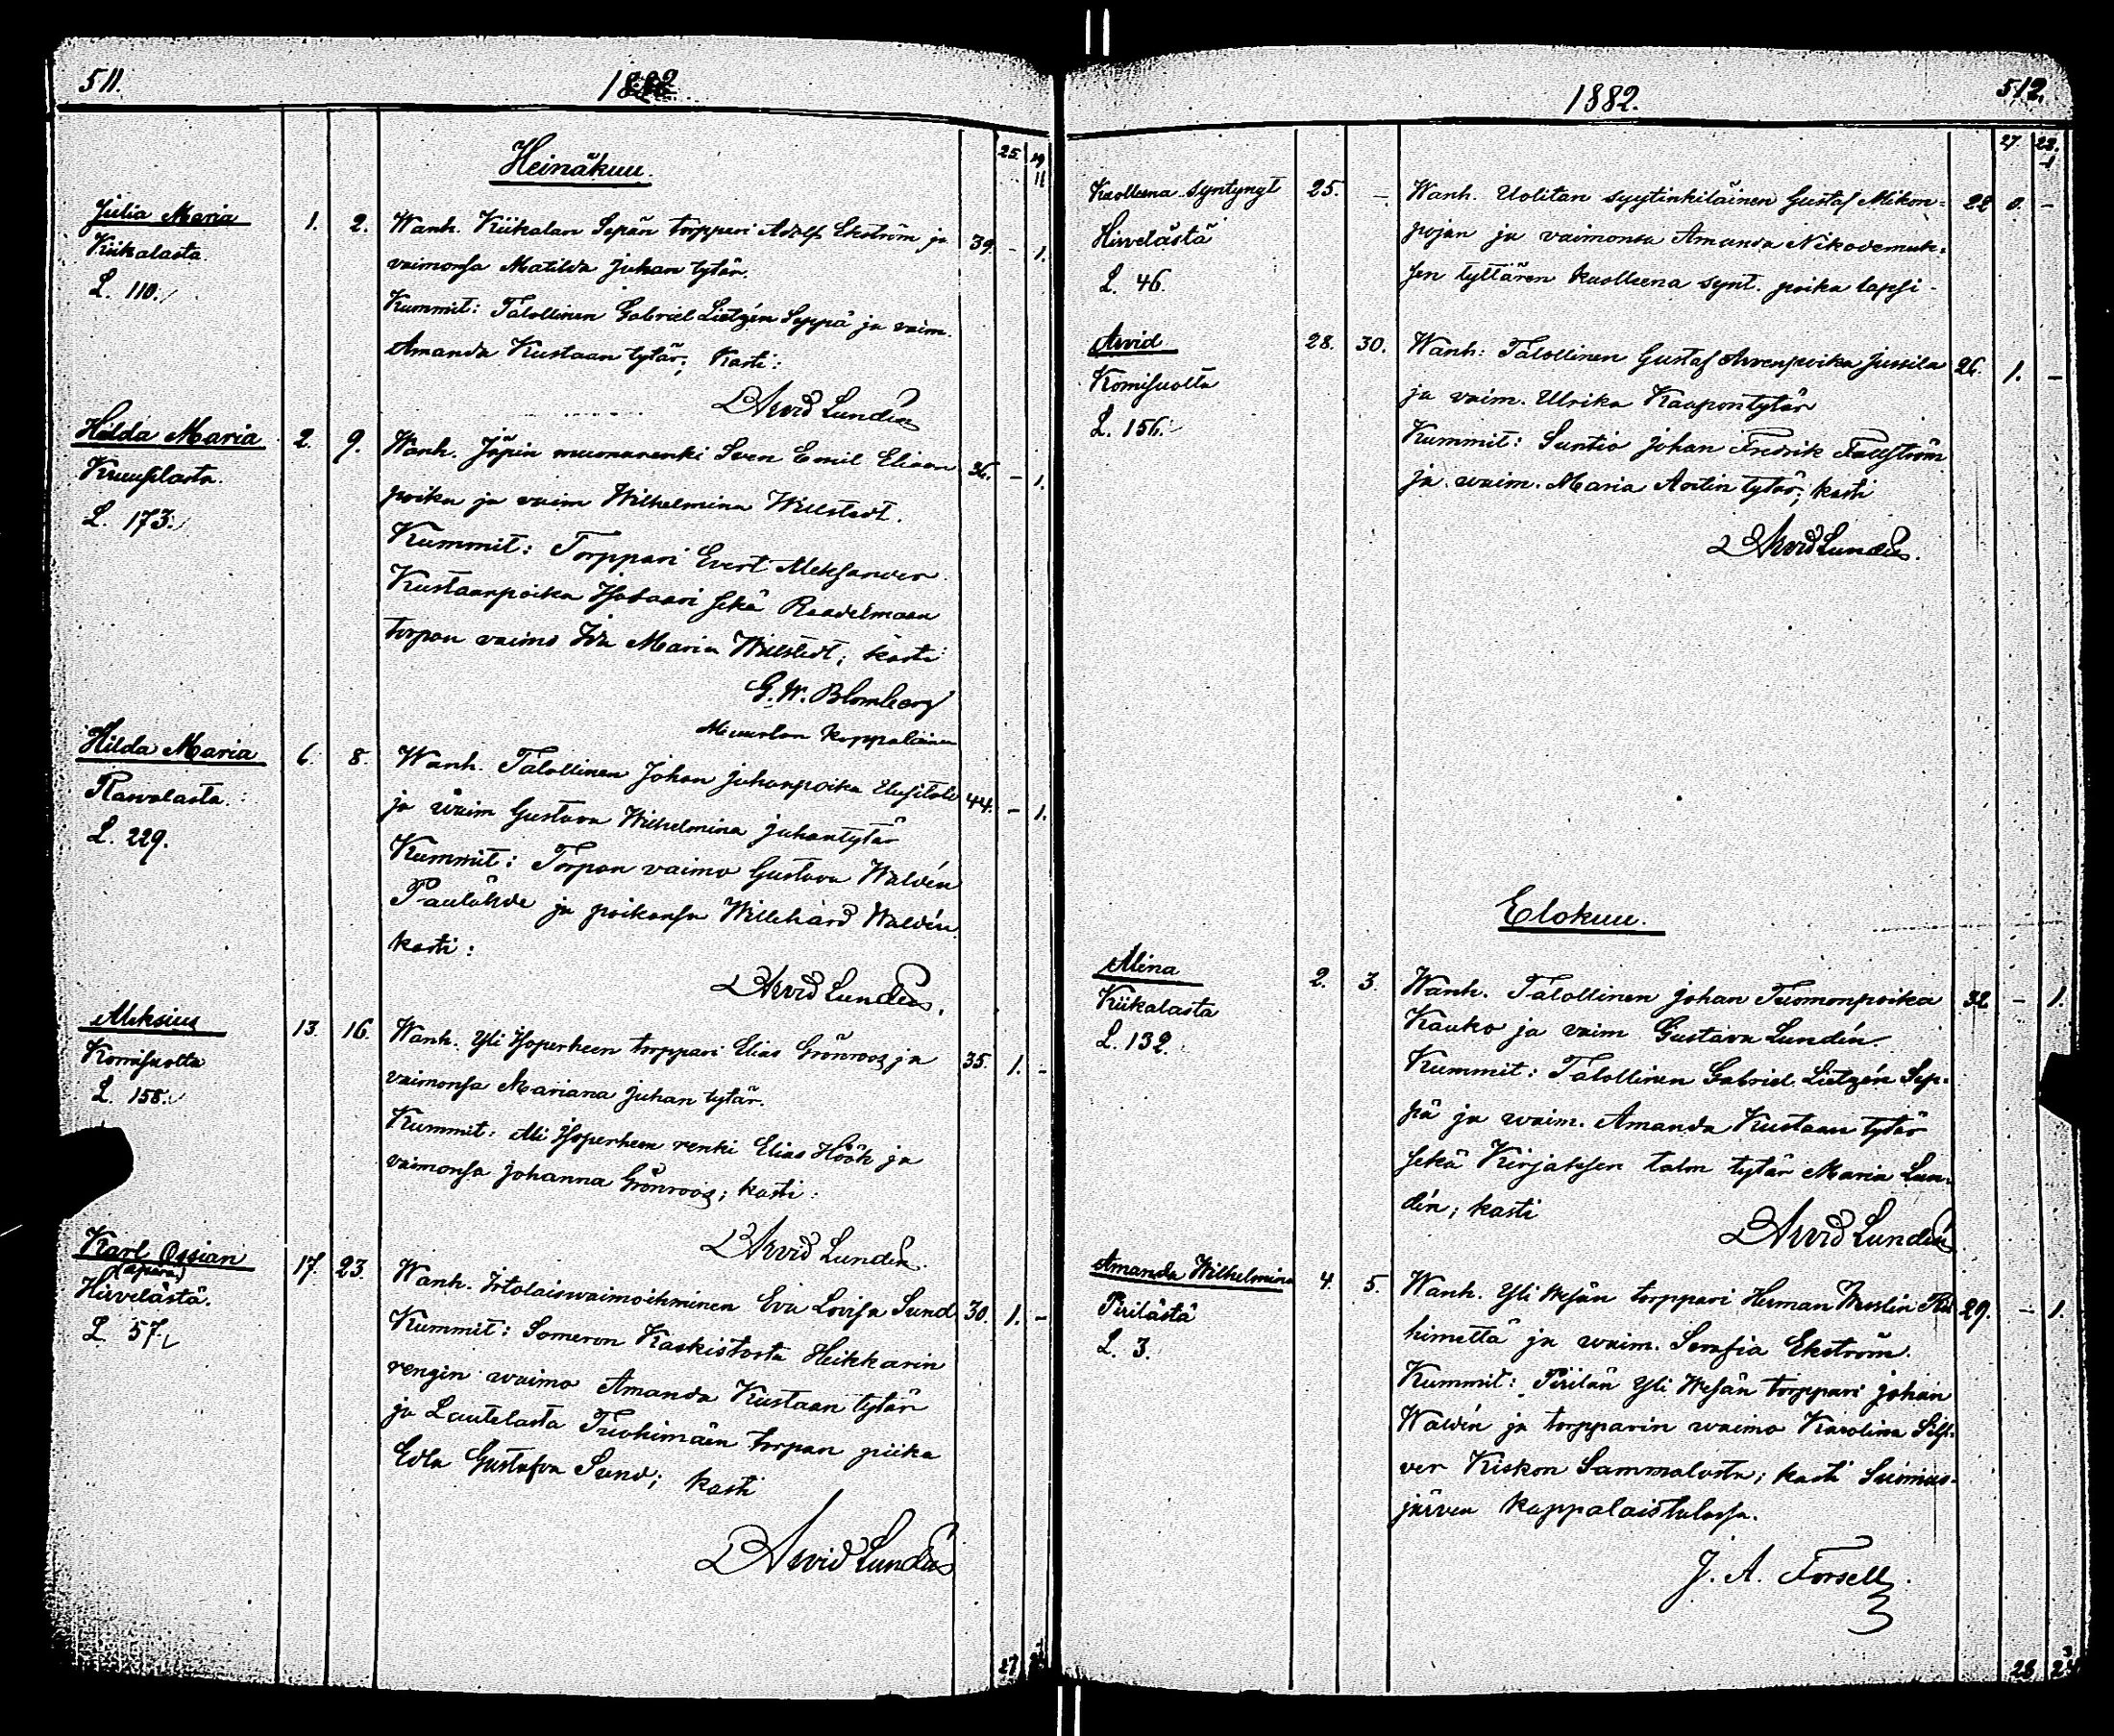 511.
1882
Heinäkuu.
25. 19
11
Julia Maria 1. 2. Wanh. Kiikalan Sepän torppari Adolf Ekström ja 39. - 1.
Kiikalasta vaimonsa Matilda Juhan tytär.
L. 110. Kummit: Talollinen Gabriel Lietzén Seppä ja vaim.
Amanda Kustaan tytär; Kasti:
Arvid Lundén
Hilda Maria 2. 9. Wanh. Jäpin muonarenki Sven Emil Elian 36. - 1.
poika ja vaim Wilhelmina Willstedt.
L. 173. Kummit: Torppari Evert Aleksander
Kustaanpoika Isotaari sekä Raadelmaan
torpan vaimo Ida Maria Willstedt; kasti
G. W. Blomberg
Muurlan kappalainen
Hilda Maria 6. 8. Wanh. Talollinen Johan Juhanpoika Uusitalo 44. - 1.
ja vaim Gustava Wilhelmina Juhantytär
L. 229. Kummit: Torpan vaimo Gustava Waldén
ja poikansa Willehard Waldén
kasti:
Arvid Lundén.
Aleksius 13. 16. Wanh. Yli Isoperheen torppari Elias Grönroos ja 35. 1. -
Komisuolta vaimonsa Mariana Juhan tytär.
L. 158. Kummit: Ali Isoperheen renki Elias Höök ja
vaimonsa Johanna Grönroos; kasti:
Arvid Lundén.
Karl Ossian 17. 23. Wanh. Irtolaisvaimoihminen Eva Lovisa Sund 30. 1. -
(äpärä)
Hirvelästä. Kummit: Someron Kaskistosta Heikkarin
L. 57. rengin vaimo Amanda Kustaan tytär
ja Lautelasta Tuohimäen torpan piika
Edla Gustafva Sund; kasti
Arvid Lundén
27
1882.
512.
27 22.
1
Kuolleena syntynyt 25. - Wanh. Uolitan syytinkiläinen Gustaf Mikon= 22 0. -
Hirvelästä pojan ja vaimonsa Amanda Nikodemuk=
L. 46. sen tyttären kuolleena synt. poika lapsi -
Arvid 28. 30. Wanh: Talollinen Gustaf Arvenpoika Jussila 26. 1. -
Komisuolta ja vaim. Ulrika Kaapontytär
L. 156. Kummit: Suntio Johan Fredrik Fallström
ja vaim. Maria Antin tytär; kasti
Arvid Lundén.
Elokuu.
Mina 2. 3. Wanh. Talollinen Johan Tuomonpoika 32 - 1.
Kiikalasta Kauko ja vaim Gustava Lundén.
L. 132. Kummit: Talollinen Gabriel Lietzén Sep-
pä ja vaim. Amanda Kustaan tytär
sekä Kirjaksen talon tytär Maria Lun-
dén; kasti
Arvid Lundén
Amanda Wilhelmina 4. 5. Wanh. Yli Wesän torppari Herman 29. - 1.
Pirilästä himettä ja vaim. Serafia Ekström.
L. 3. Kummit: Pirilän Yli Wesän torppari Johan
Waldén ja torpparin vaimo Karolina Silf-
ver Kiskon Sammalosta; kasti Suomus-
järven kappalaistalossa.
J. A. Forsell